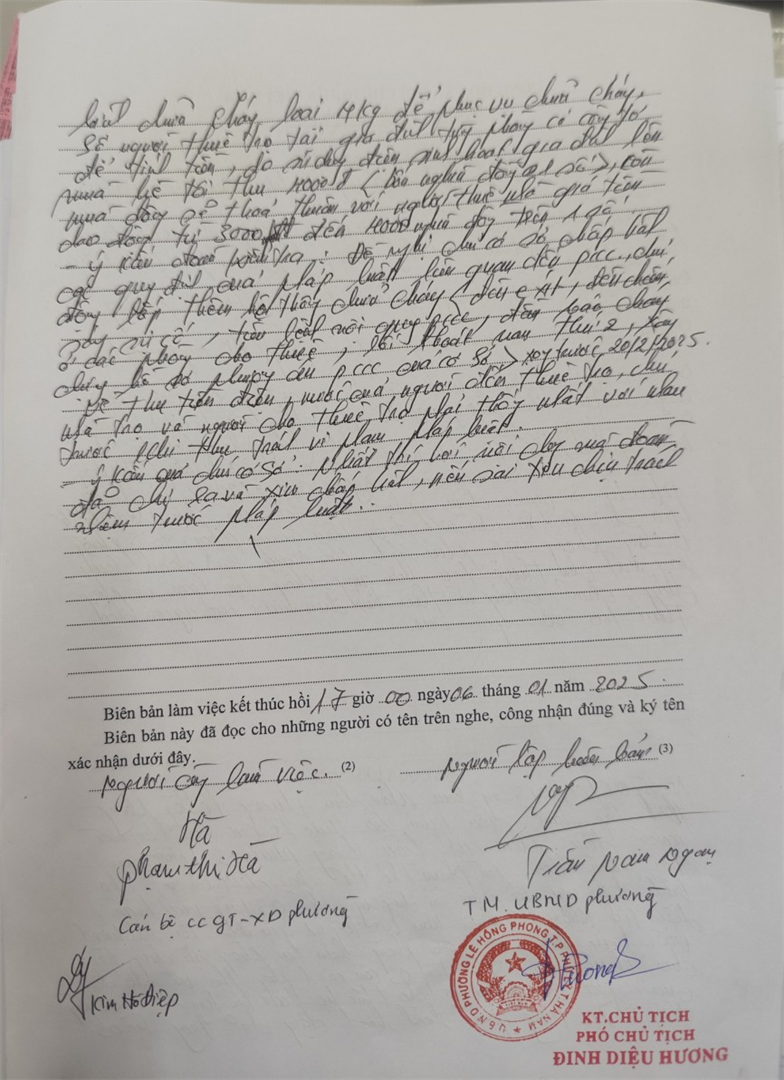 bình chữa cháy loại 4kg để phục vụ chữa cháy.
Số người thuê trọ tại gia đình từng phòng có công tơ
để tính tiền, do sử dụng điện sinh hoạt gia đình lên
mùa hè tôi thu 4000đ (bốn nghìn đồng 1 số), còn
mùa đông sẽ thoả thuận với người thuê nhà giá tiền
dao động từ 3000 đến 4000 nghìn đồng trên 1 số.
- ý kiến đoàn kiểm tra: Đề nghị chủ cơ sở chấp hành
quy định của pháp luật liên quan đến pccc, chú
động lắp thêm hệ thống chữa cháy (đèn exit, đèn chiếu
sáng sự cố, tiêu lệnh nội quy pccc, đèn báo cháy
ở các phòng cho thuê, lối thoát nạn thứ 2, xây
dựng hồ sơ phương án pccc của cơ sở > xong trước 20/2/2025.
Về thu tiền điện, nước của người đến thuê trọ, chủ
nhà trọ và người cho thuê trọ phải thống nhất với nhau
trước khi thu, tránh vi phạm pháp luật.
- ý kiến của chủ cơ sở: Nhất trí với nội dung mà đoàn
đã chỉ ra và xin chấp hành, nếu sai tôi xin chịu trách
nhiệm trước pháp luật.
Biên bản làm việc kết thúc hồi 17 giờ 00 ngày 06 tháng 01 năm 2025.
Biên bản này đã đọc cho những người có tên trên nghe, công nhận đúng và ký tên
xác nhận dưới đây.
Người cùng làm việc. (2)
Người lập biên bản (3)
Hà
Phạm Thị Hà
Trần Nam Ngạn
Cán bộ CC GT-XD phường
TM. UBND phường
Kim Hồ Điệp
U.B.N.D PHƯỜNG LÊ HỒNG PHONG T.P PHỦ LÝ T. HÀ NAM
KT.CHỦ TỊCH
PHÓ CHỦ TỊCH
ĐINH DIỆU HƯƠNG